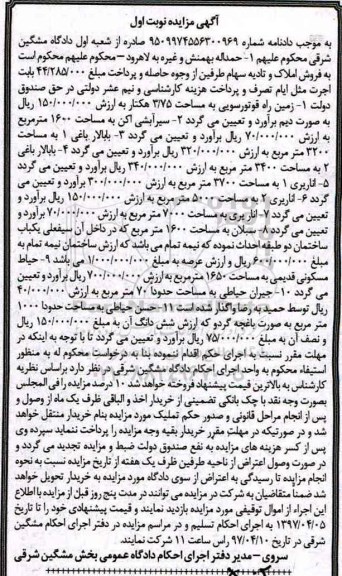 آگهی مزایده نوبت اول
به موجب دادنامه شماره 9509974556300969 صادره از شعبه اول دادگاه مشگین
شرقی محکوم علیهم 1- حمداله بهمنش و غیره به لاهرود – محکوم علیهم محکوم است
به فروش املاک و تادیه سهام طرفین از وجوه حاصله و پرداخت مبلغ 44/285/000 بابت
اجرت مثل ایام تصرف و پرداخت هزینه کارشناسی و نیم عشر دولتی در حق صندوق
دولت 1- زمین راه قوتورسویی به مساحت 3/75 هکتار به ارزش 150/000/000 ریال
به صورت دیم برآورد و تعیین می گردد 2- سیرآبشی اکن به مساحت 1600 مترمربع
به ارزش 70/000/000 ریال برآورد و تعیین می گردد 3- بابالار باغی 1 به مساحت
3200 متر مربع به ارزش 320/000/000 ریال برآورد و تعیین می گردد 4- بابالار باغی
2 به مساحت 3400 متر مربع به ارزش 340/000/000 ریال برآورد و تعیین می گردد
5- اناربری 1 به مساحت 3700 متر مربع به ارزش 300/000/000 برآورد و تعیین می
گردد 6- اناربری 2 به مساحت 500 متر مربع به ارزش 150/000/000 ریال برآورد و
تعیین می گردد 7- اناربری به مساحت 7000 متر مربع به ارزش 70/000/000 برآورد و
تعیین می گردد 8- سبلان به مساحت 1600 متر مربع که در داخل آن سیفعلی یکباب
ساختمان دو طبقه احداث نموده که نیمه تمام می باشد که ارزش ساختمان نیمه تمام به
مبلغ 600/000/000 ریال و ارزش عرصه به مبلغ 1/000/000/000 می باشد 9- حیاط
مسکونی قدیمی به مساحت 1650 مترمربع به ارزش 700/000/000 ریال برآورد و تعیین
می گردد 10- جیران حیاطی به مساحت حدودا 70 متر مربع به ارزش 40/000/000
ریال توسط حمید به رضا واگذار شده است 11- حسن حیاطی به مساحت حدودا 1000
متر مربع به صورت باغچه گردو که ارزش شش دانگ آن به مبلغ 150/000/000 ریال
و نصف آن به مبلغ 75/000/000 ریال برآورد و تعیین می گردد تا با توجه به اینکه در
مهلت مقرر نسبت به اجرای حکم اقدام ننموده بنا به درخواست محکوم له به منظور
استیفاء محکوم به واحد اجرای احکام دادگاه مشگین شرقی در نظر دارد براساس نظریه
کارشناس به بالاترین قیمت پیشنهاد فروخته خواهد شد 10 درصد مزایده را فی المجلس
بصورت وجه نقد یا چک بانکی تضمینی از خریدار اخذ و الباقی ظرف یک ماه از وصول و
پس از انجام مراحل قانونی و صدور حکم تملیک مورد مزایده بنام خریدار منتقل خواهد
شد و در صورتیکه در مهلت مقرر خریدار بقیه وجه مزایده را پرداخت ننماید سپرده وی
پس از کسر هزینه های مزایده به نفع صندوق دولت ضبط و مزایده تجدید می گردد و
در صورت وصول اعتراض از ناحیه طرفین ظرف یک هفته از تاریخ مزایده نسبت به نحوه
انجام مزایده تا رسیدگی به اعتراض از سوی دادگاه مورد مزایده به خریدار تحویل خواهد
شد ضمنا متقاضیان به شرکت در مزایده می توانند در مدت پنج روز قبل از مزایده با اطلاع
این اجراء از اموال توقیفی مورد مزایده بازدید نمایند و قیمت پیشنهادی خود را تا تاریخ
1397/04/05 به اجرای احکام تسلیم و در مراسم مزایده در دفتر اجرای احکام مشگین
شرقی در تاریخ 97/04/10 راس ساعت 11 شرکت نمایند.
سروی – مدیر دفتر اجرای احکام دادگاه عمومی بخش مشگین شرقی